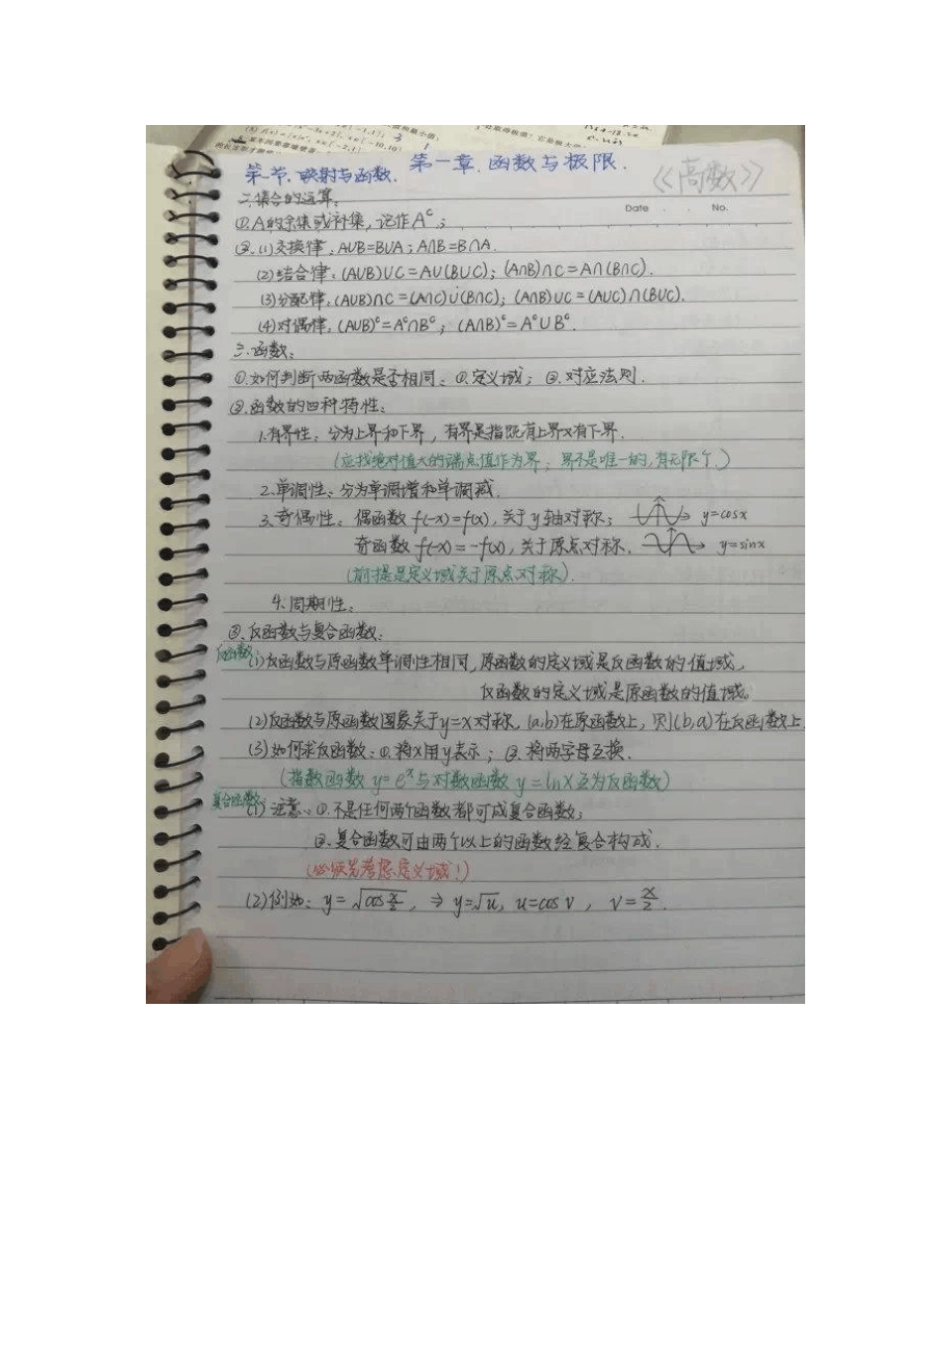 第一章.函数与极限.
《高数》
第一节.映射与函数.
Date . . No.
二.集合的运算:
①.A的余集或补集,记作Aᶜ;
②.(1)交换律:A∪B=B∪A;A∩B=B∩A.
(2)结合律:(A∪B)∪C=A∪(B∪C);(A∩B)∩C=A∩(B∩C).
(3)分配律:(A∪B)∩C=(A∩C)∪(B∩C);(A∩B)∪C=(A∪C)∩(B∪C).
(4)对偶律:(A∪B)ᶜ=Aᶜ∩Bᶜ;(A∩B)ᶜ=Aᶜ∪Bᶜ.
三.函数:
①.如何判断两函数是否相同:①.定义域;②.对应法则.
②.函数的四种特性:
1.有界性:分为上界和下界,有界是指既有上界又有下界.
(应找绝对值大的端点值作为界;界不是唯一的,有无限个.)
2.单调性:分为单调增和单调减.
3.奇偶性:偶函数f(-x)=f(x),关于y轴对称; y=cosx
奇函数f(-x)=-f(x),关于原点对称. y=sinx
(前提是定义域关于原点对称).
4.周期性:
③.反函数与复合函数:
反函数(1)反函数与原函数单调性相同,原函数的定义域是反函数的值域,
反函数的定义域是原函数的值域。
(2)反函数与原函数图象关于y=x对称.(a,b)在原函数上,则(b,a)在反函数上
(3)如何求反函数:①.将x用y表示;②.将两字母互换.
(指数函数y=eˣ与对数函数y=lnx互为反函数)
复合函数(1)注意:①.不是任何两个函数都可成复合函数;
②.复合函数可由两个以上的函数经复合构成.
(必须先考虑定义域!)
(2)例如:y=√(cos x/2),⇒y=√u,u=cosv,v=x/2.